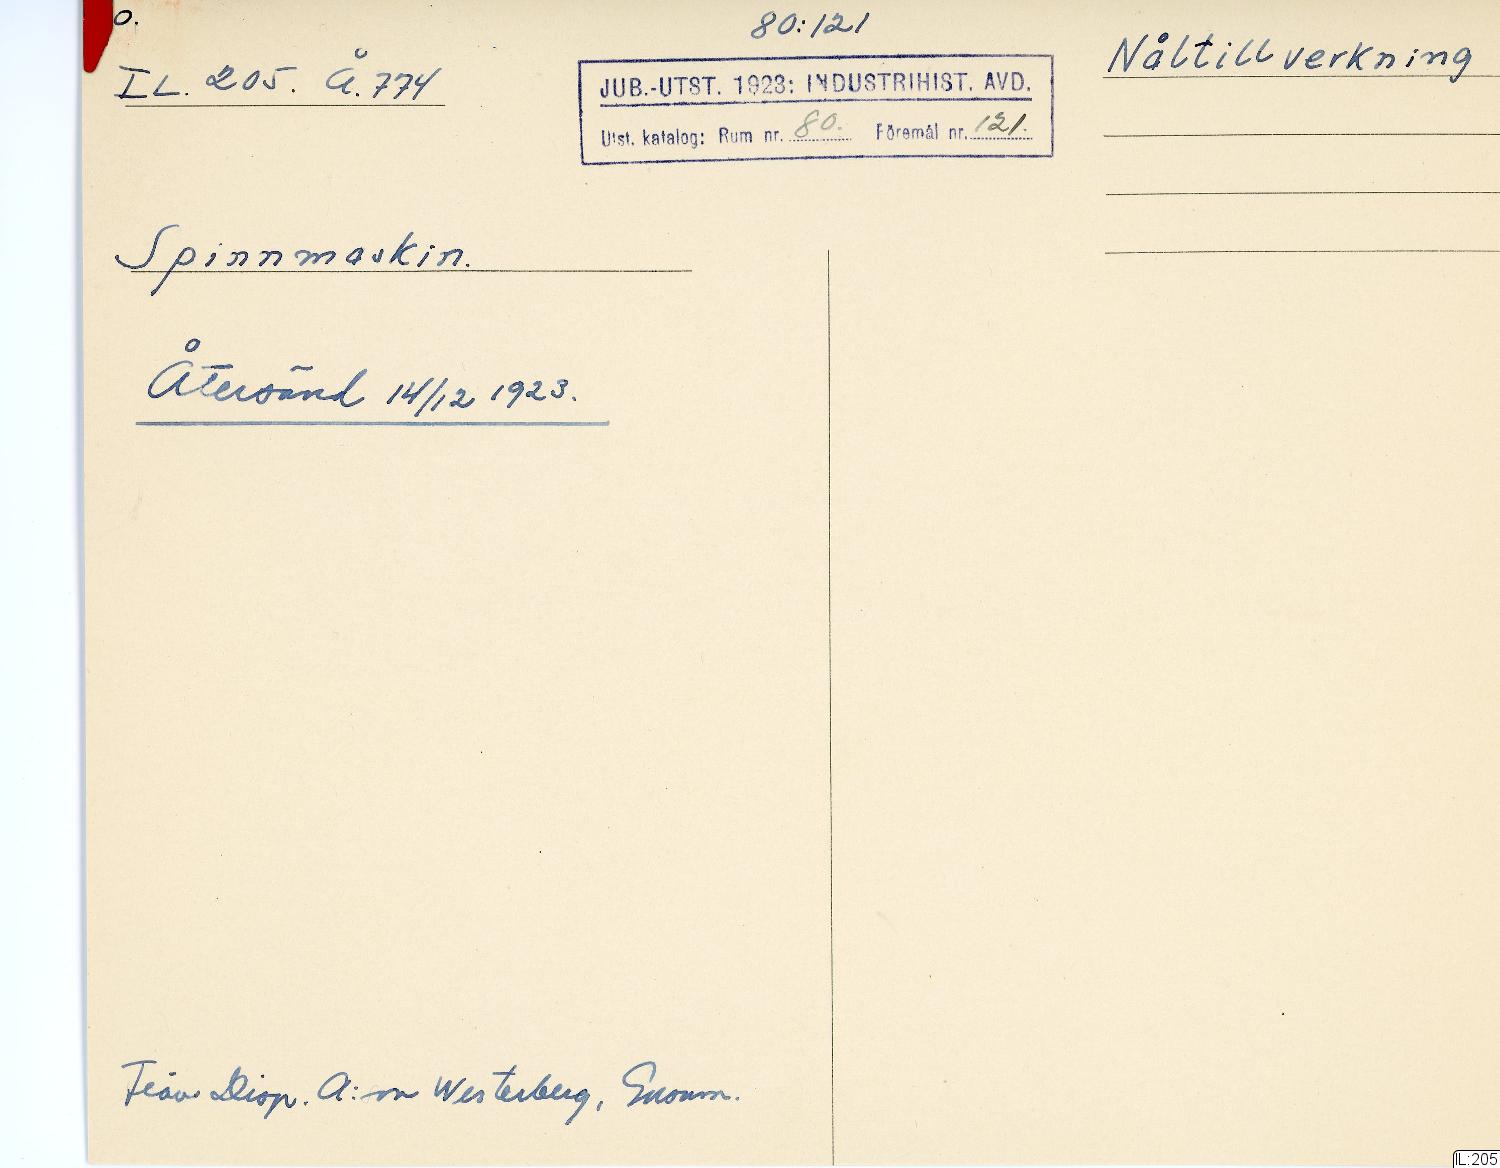 o.
80:121
IL. 205. Å.774
Nåltillverkning
JUB.-UTST. 1923: INDUSTRIHIST. AVD.
Utst. katalog: Rum nr. 80. Föremål nr. 121.
Spinnmaskin.
Återsänd 14/12 1923.
Från Disp. A:son Westerberg,
IL:205